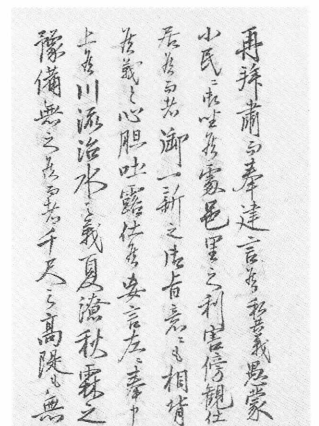 再拝肅而奉建言候私共義愚蒙
小民ニ御坐候處邑里之利害傍観仕
居候而者御一新之御旨意ニも相背
候義と心胆吐露仕候妄言左ニ奉申
上候川流治水之義夏潦秋霖之
豫備無之候而者千尺之高隄も無